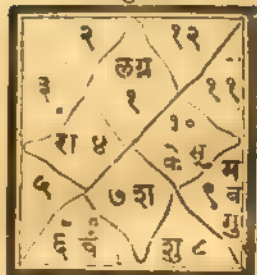 २ १२
लग्न
३ १ ११
१०
रा ४ के सु
५ ७ श ९ म
बु
गु
६ चं शु ८